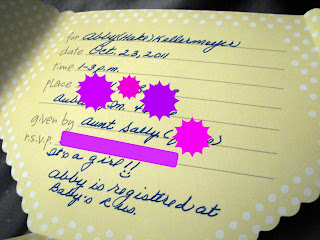 for Abby (Hake) Kellermeyer
date Oct. 23, 2011
time 1-3 p.m.
place
given by Aunt Sally
r.s.v.p.
It's a girl!!
Abby is registered at
Baby's R Us.